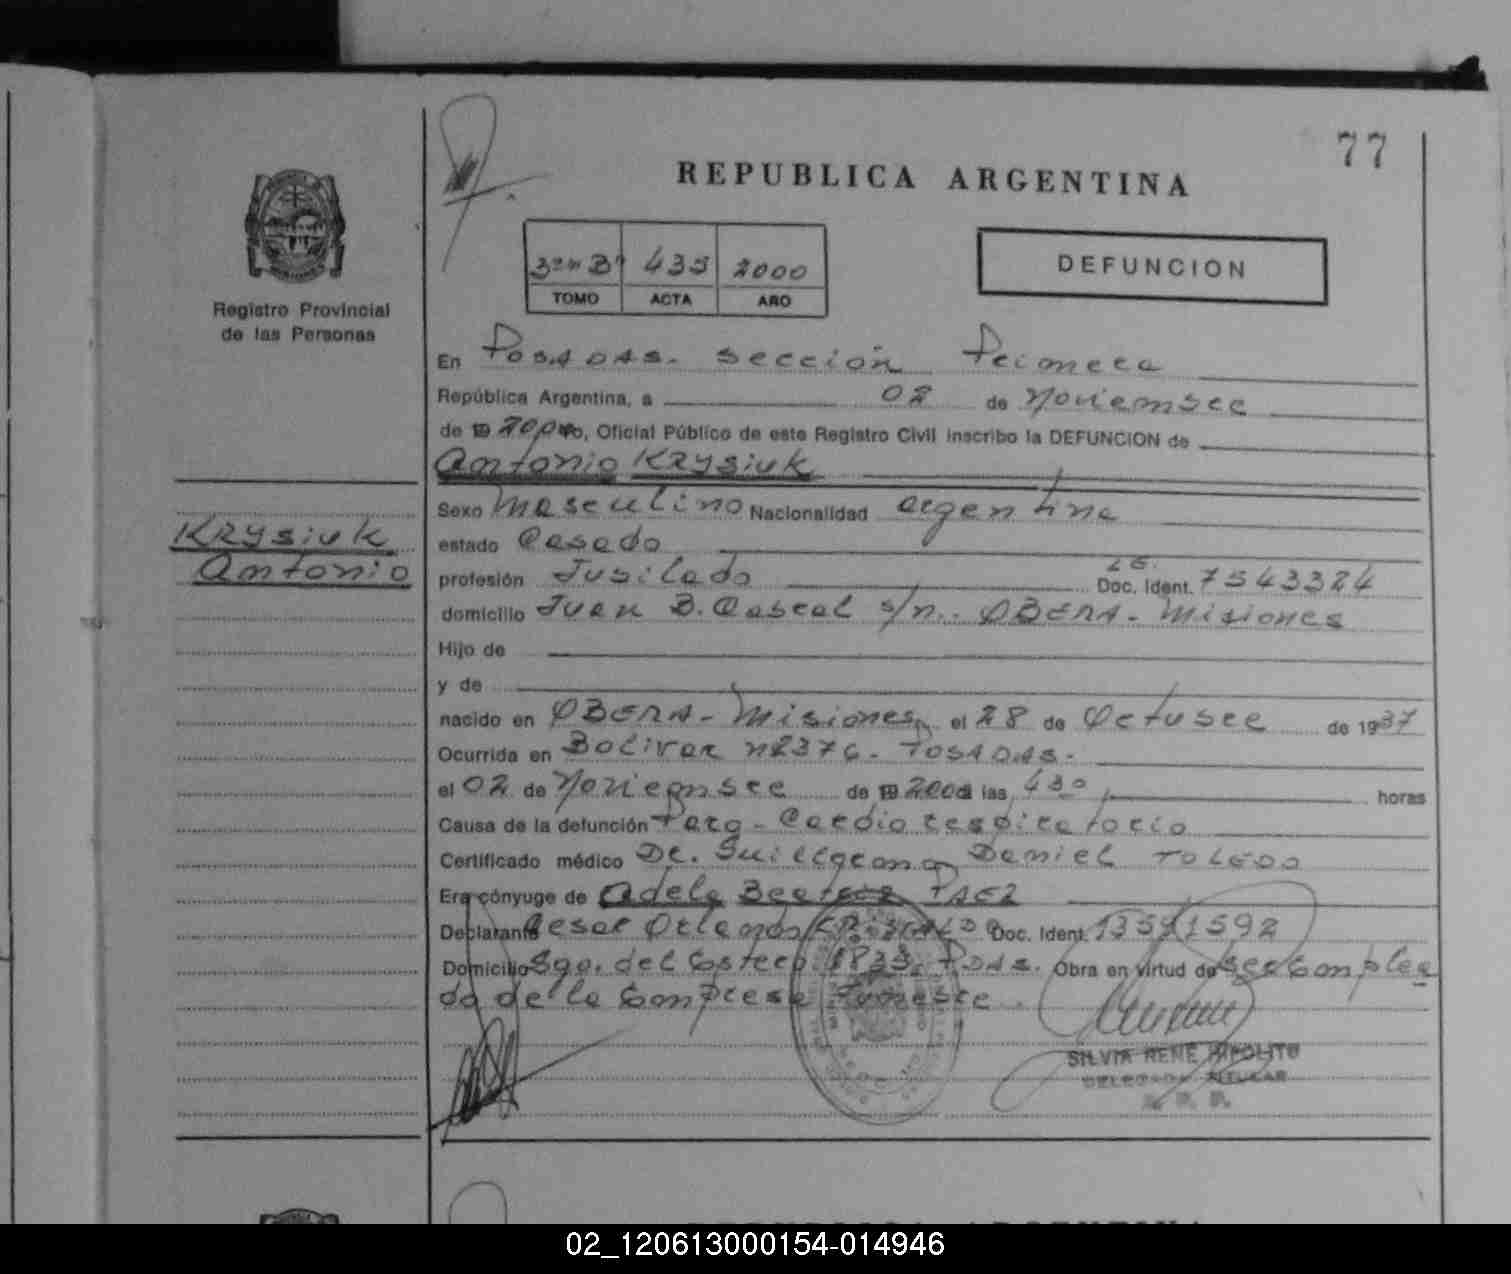 77
REPUBLICA ARGENTINA
435 2000
TOMO ACTA AÑO
DEFUNCION
Registro Provincial
de las Personas
En Posadas - sección Primera
República Argentina, a 02 de Noviembre
de 19 2000 Yo, Oficial Público de este Registro Civil inscribo la DEFUNCION de
Antonio Krysiuk
Krysiuk
Antonio
Sexo Masculino Nacionalidad argentina
estado Casado
profesión Jubilado L.E. Doc. Ident. 7543324
domicilio Juan B. Cabral s/n. - OBERA - Misiones
Hijo de
y de
nacido en OBERA - Misiones, el 28 de Octubre de 1937
Ocurrida en Bolivar nº 2376 - POSADAS -
el 02 de Noviembre de 19 2000 a las 4 30 horas
Causa de la defunción Paro - Cardio respiratorio
Certificado médico Dr. Guillermo Daniel TOLEDO
Era cónyuge de Adela Beatriz PAEZ
Declarante Cesar Orlando Doc. Ident. 13591592
Domicilio Sgo. del Estero 1833. Pdas. Obra en virtud de ser Emplea
do de la Empresa Funebre.
SILVIA RENE HIPOLITO
DELEGADA TITULAR
R. P. P.
REPUBLICA ARGENTINA
02_120613000154-014946